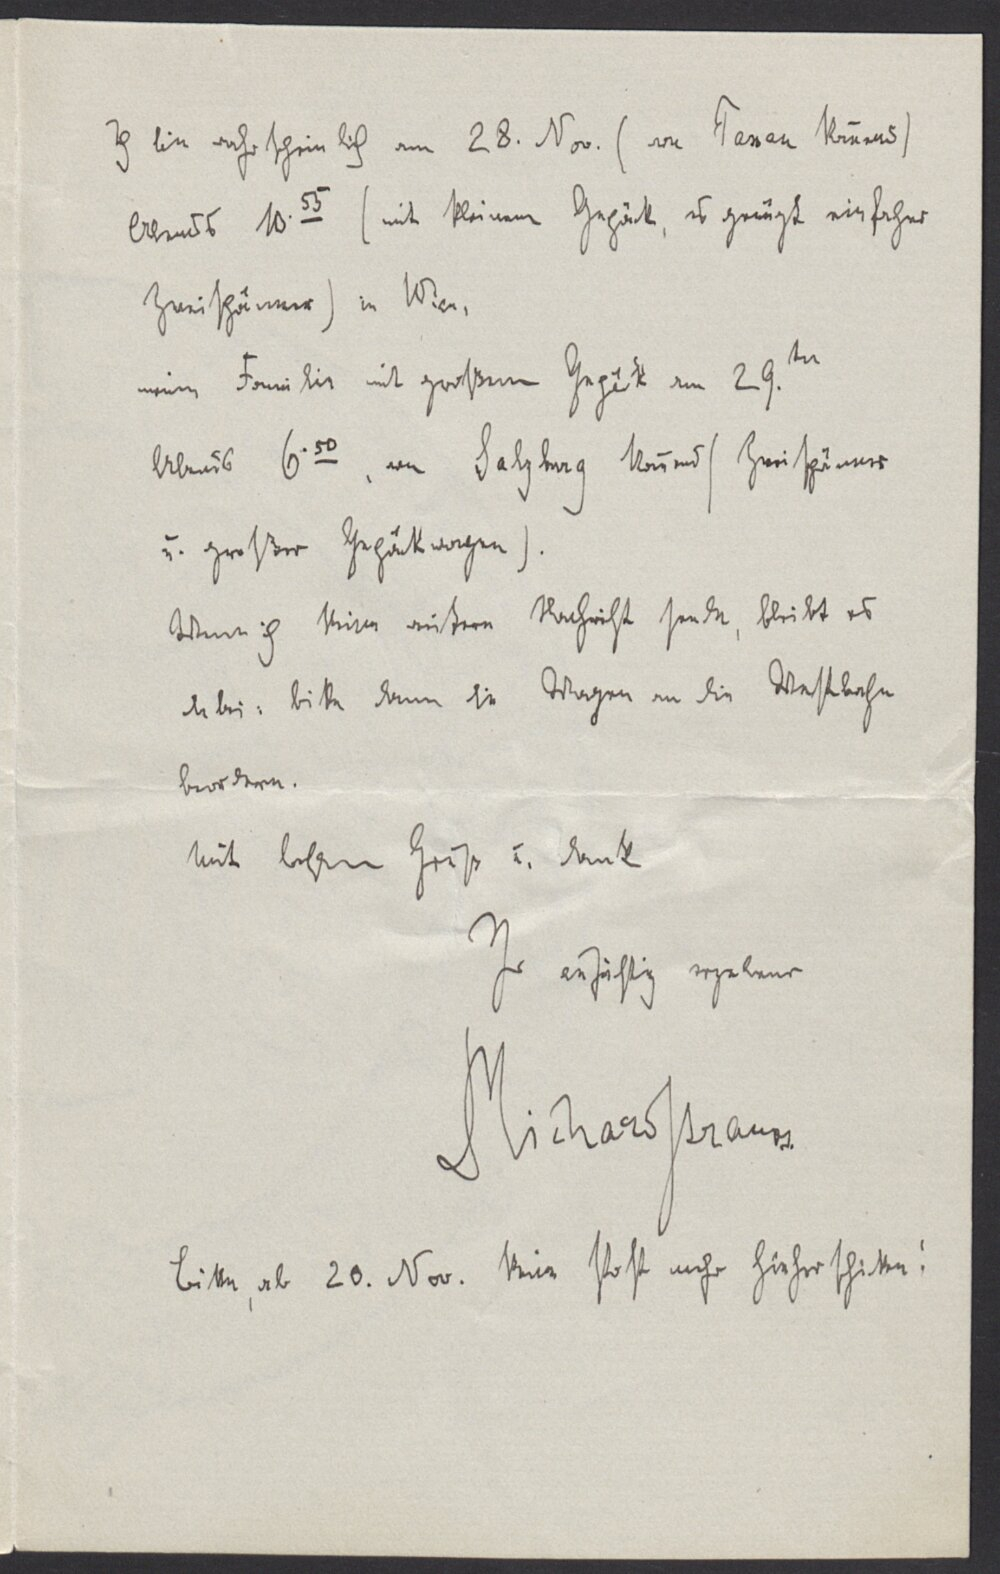 Ich bin wahrscheinlich am 28. Nov. (von Passau kom̄end)
Abends 10.55 (mit kleinem Gepäck, es genügt einfacher
Zweispänner) in Wien,
meine Familie mit großem Gepäck am 29.ten
Abends 6.50, von Salzburg kom̄end (Zweispänner
u. großer Gepäckwagen).
Wenn ich keine andere Nachricht sende, bleibt es
dabei: bitte dann die Wagen an die Westbahn
beordern.
Mit bestem Gruß u. Dank
Ihr aufrichtig ergebener
Richard Strauss.
Bitte, ab 20. Nov. keine Post mehr hieher schicken!